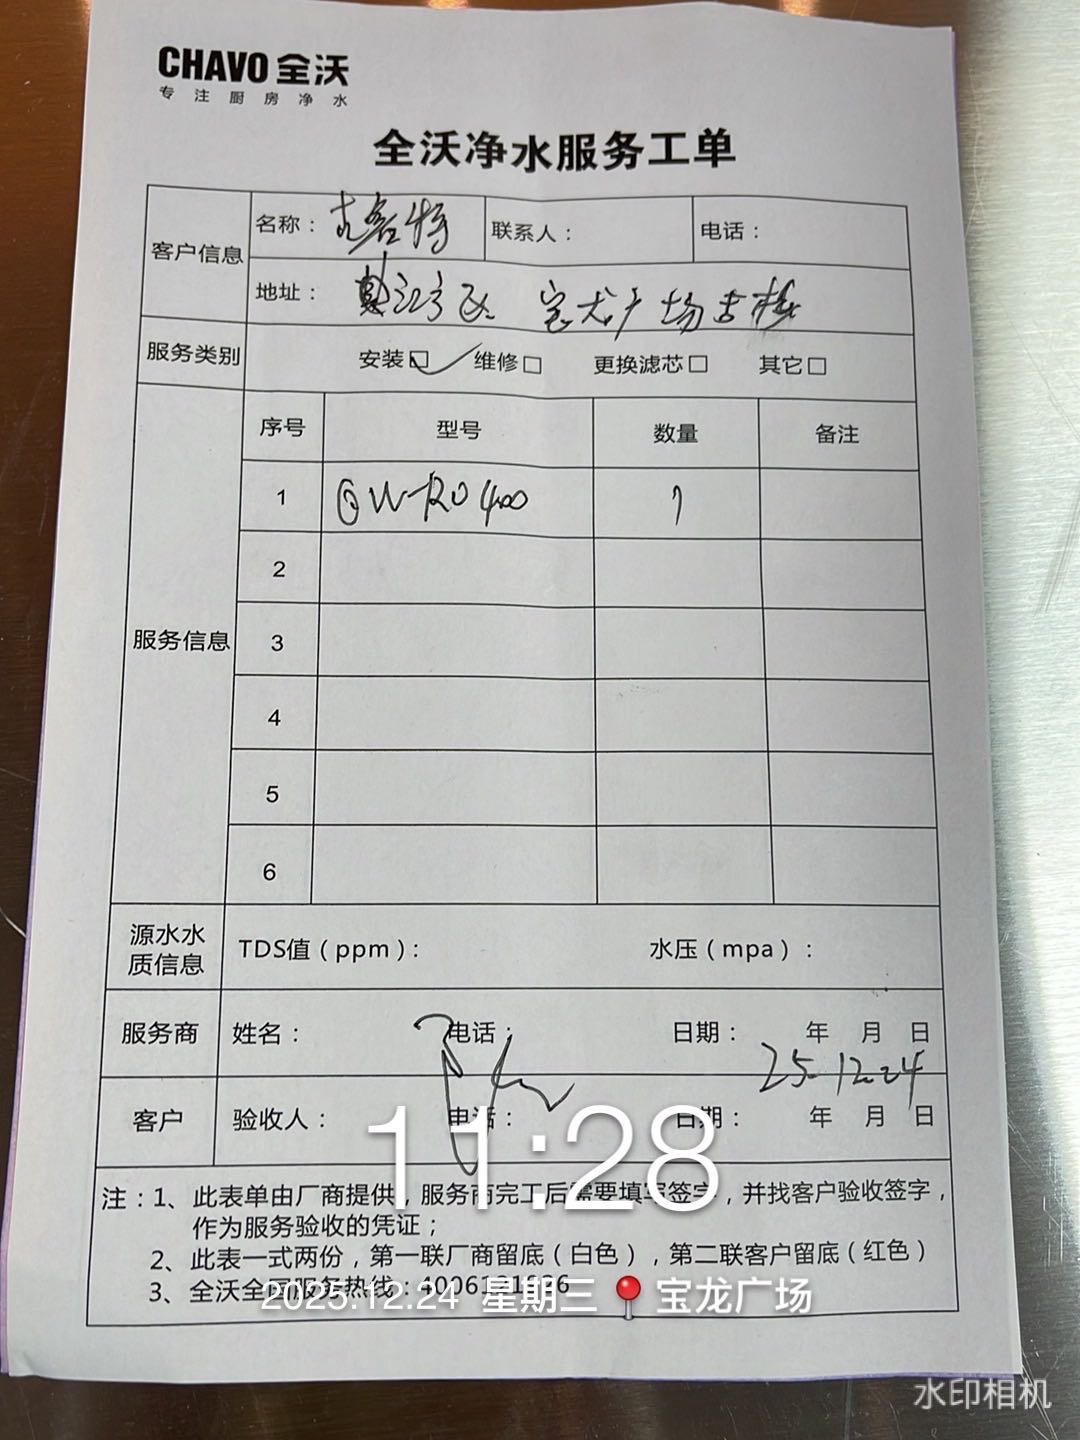 CHAVO 全沃
专注厨房净水
全沃净水服务工单
客户信息
名称：
联系人：
电话：
地址：宝龙广场
服务类别
安装☑ 维修□ 更换滤芯□ 其它□
服务信息
序号 型号 数量 备注
1 QW-RO400 1
2
3
4
5
6
源水水质信息
TDS值（ppm）：
水压（mpa）：
服务商
姓名： 电话： 日期： 年 月 日
25-12-24
客户
验收人： 电话： 日期： 年 月 日
11:28
注：1、此表单由厂商提供，服务商完工后需要填写签字，并找客户验收签字，
作为服务验收的凭证；
2、此表一式两份，第一联厂商留底（白色），第二联客户留底（红色）
3、全沃全国服务热线：
2025.12.24 星期三 宝龙广场
水印相机